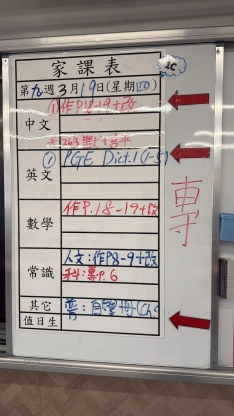 家課表
1C
第九週3月19日(星期四)
中文
①作P.18-19+改
英文
① PGE Dict.1(1-5)
數學
作P.18-19+改
常識
人文:作P8-9+改
科:專P.6
其它
普:自學冊(Ch
值日生
專